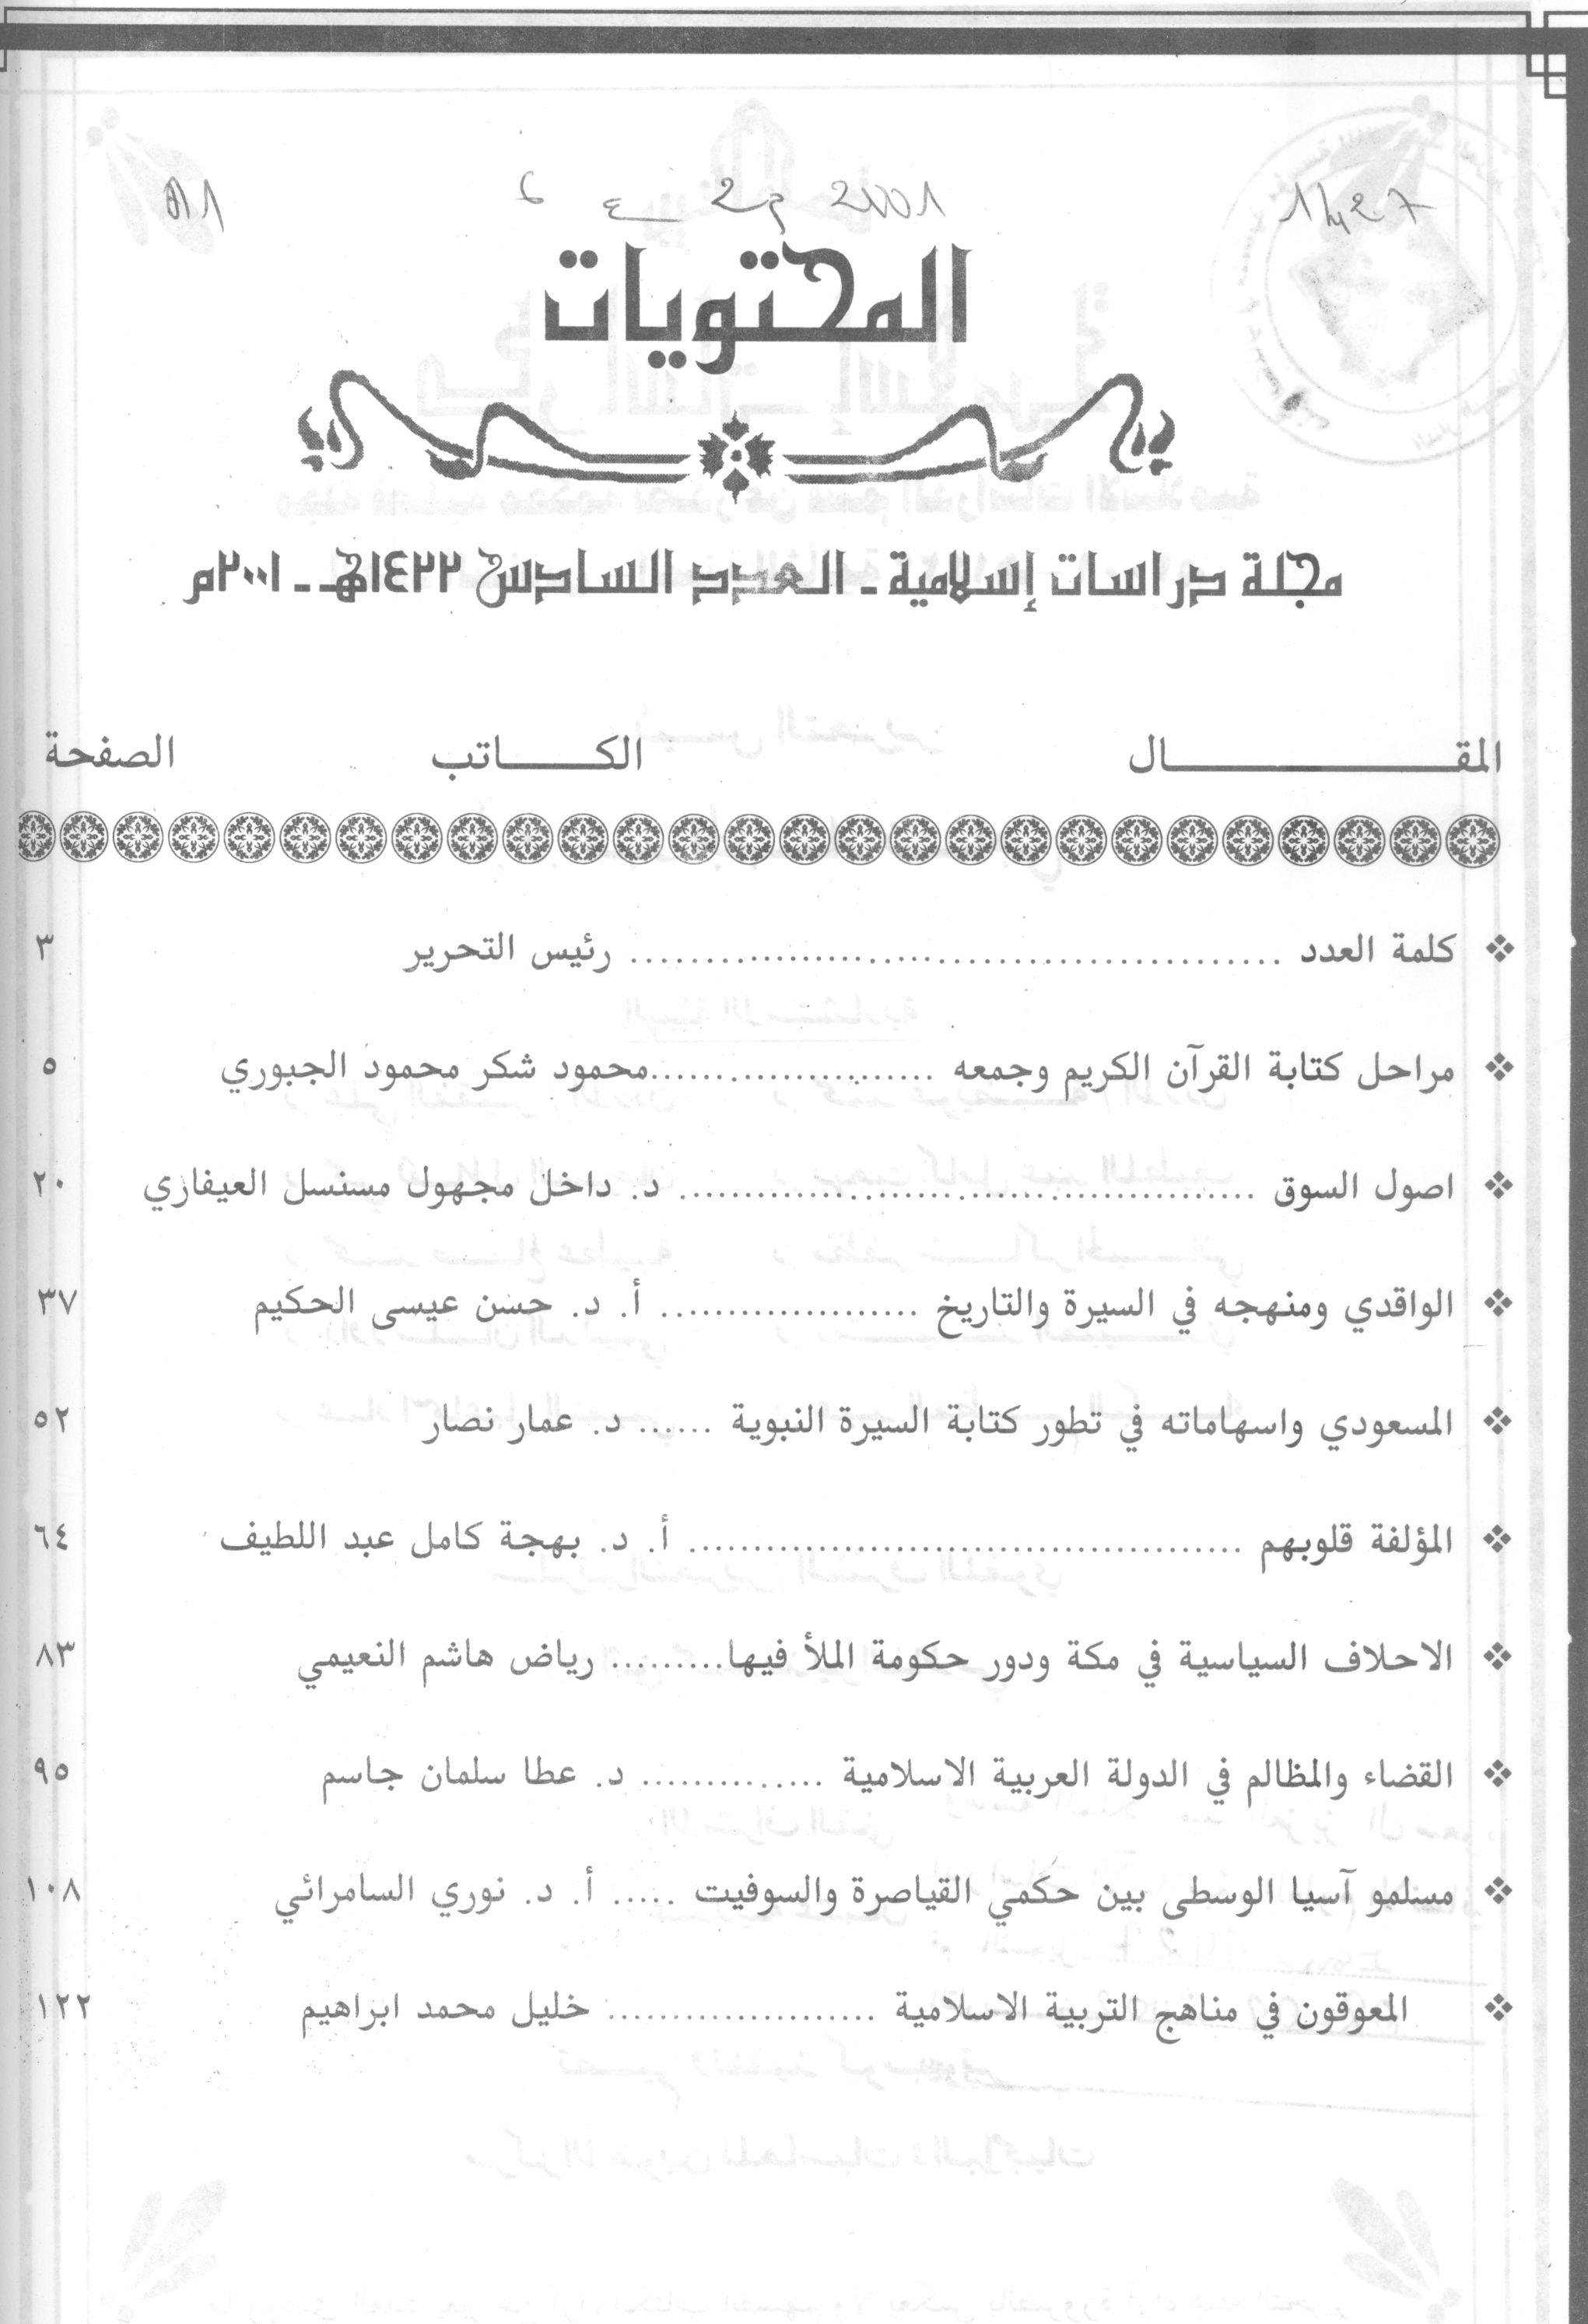 المحتويات
مجلة دراسات إسلامية ـ العدد السادس ١٤٢٢هـ ـ ٢٠٠١م
المقـــــال الكـــاتب الصفحة
كلمة العدد ........ رئيس التحرير ٣
مراحل كتابة القرآن الكريم وجمعه ........ محمود شكر محمود الجبوري ٥
اصول السوق ........ د. داخل مجهول مسنسل العيفاري ٢٠
الواقدي ومنهجه في السيرة والتاريخ ........ أ. د. حسن عيسى الحكيم ٣٧
المسعودي واسهاماته في تطور كتابة السيرة النبوية ...... د. عمار نصار ٥٢
المؤلفة قلوبهم ........ أ. د. بهجة كامل عبد اللطيف ٦٤
الاحلاف السياسية في مكة ودور حكومة الملأ فيها......... رياض هاشم النعيمي ٨٣
القضاء والمظالم في الدولة العربية الاسلامية ........ د. عطا سلمان جاسم ٩٥
مسلمو آسيا الوسطى بين حكمي القياصرة والسوفيت ..... أ. د. نوري السامرائي ١٠٨
المعوقون في مناهج التربية الاسلامية ........ خليل محمد ابراهيم ١٢٢